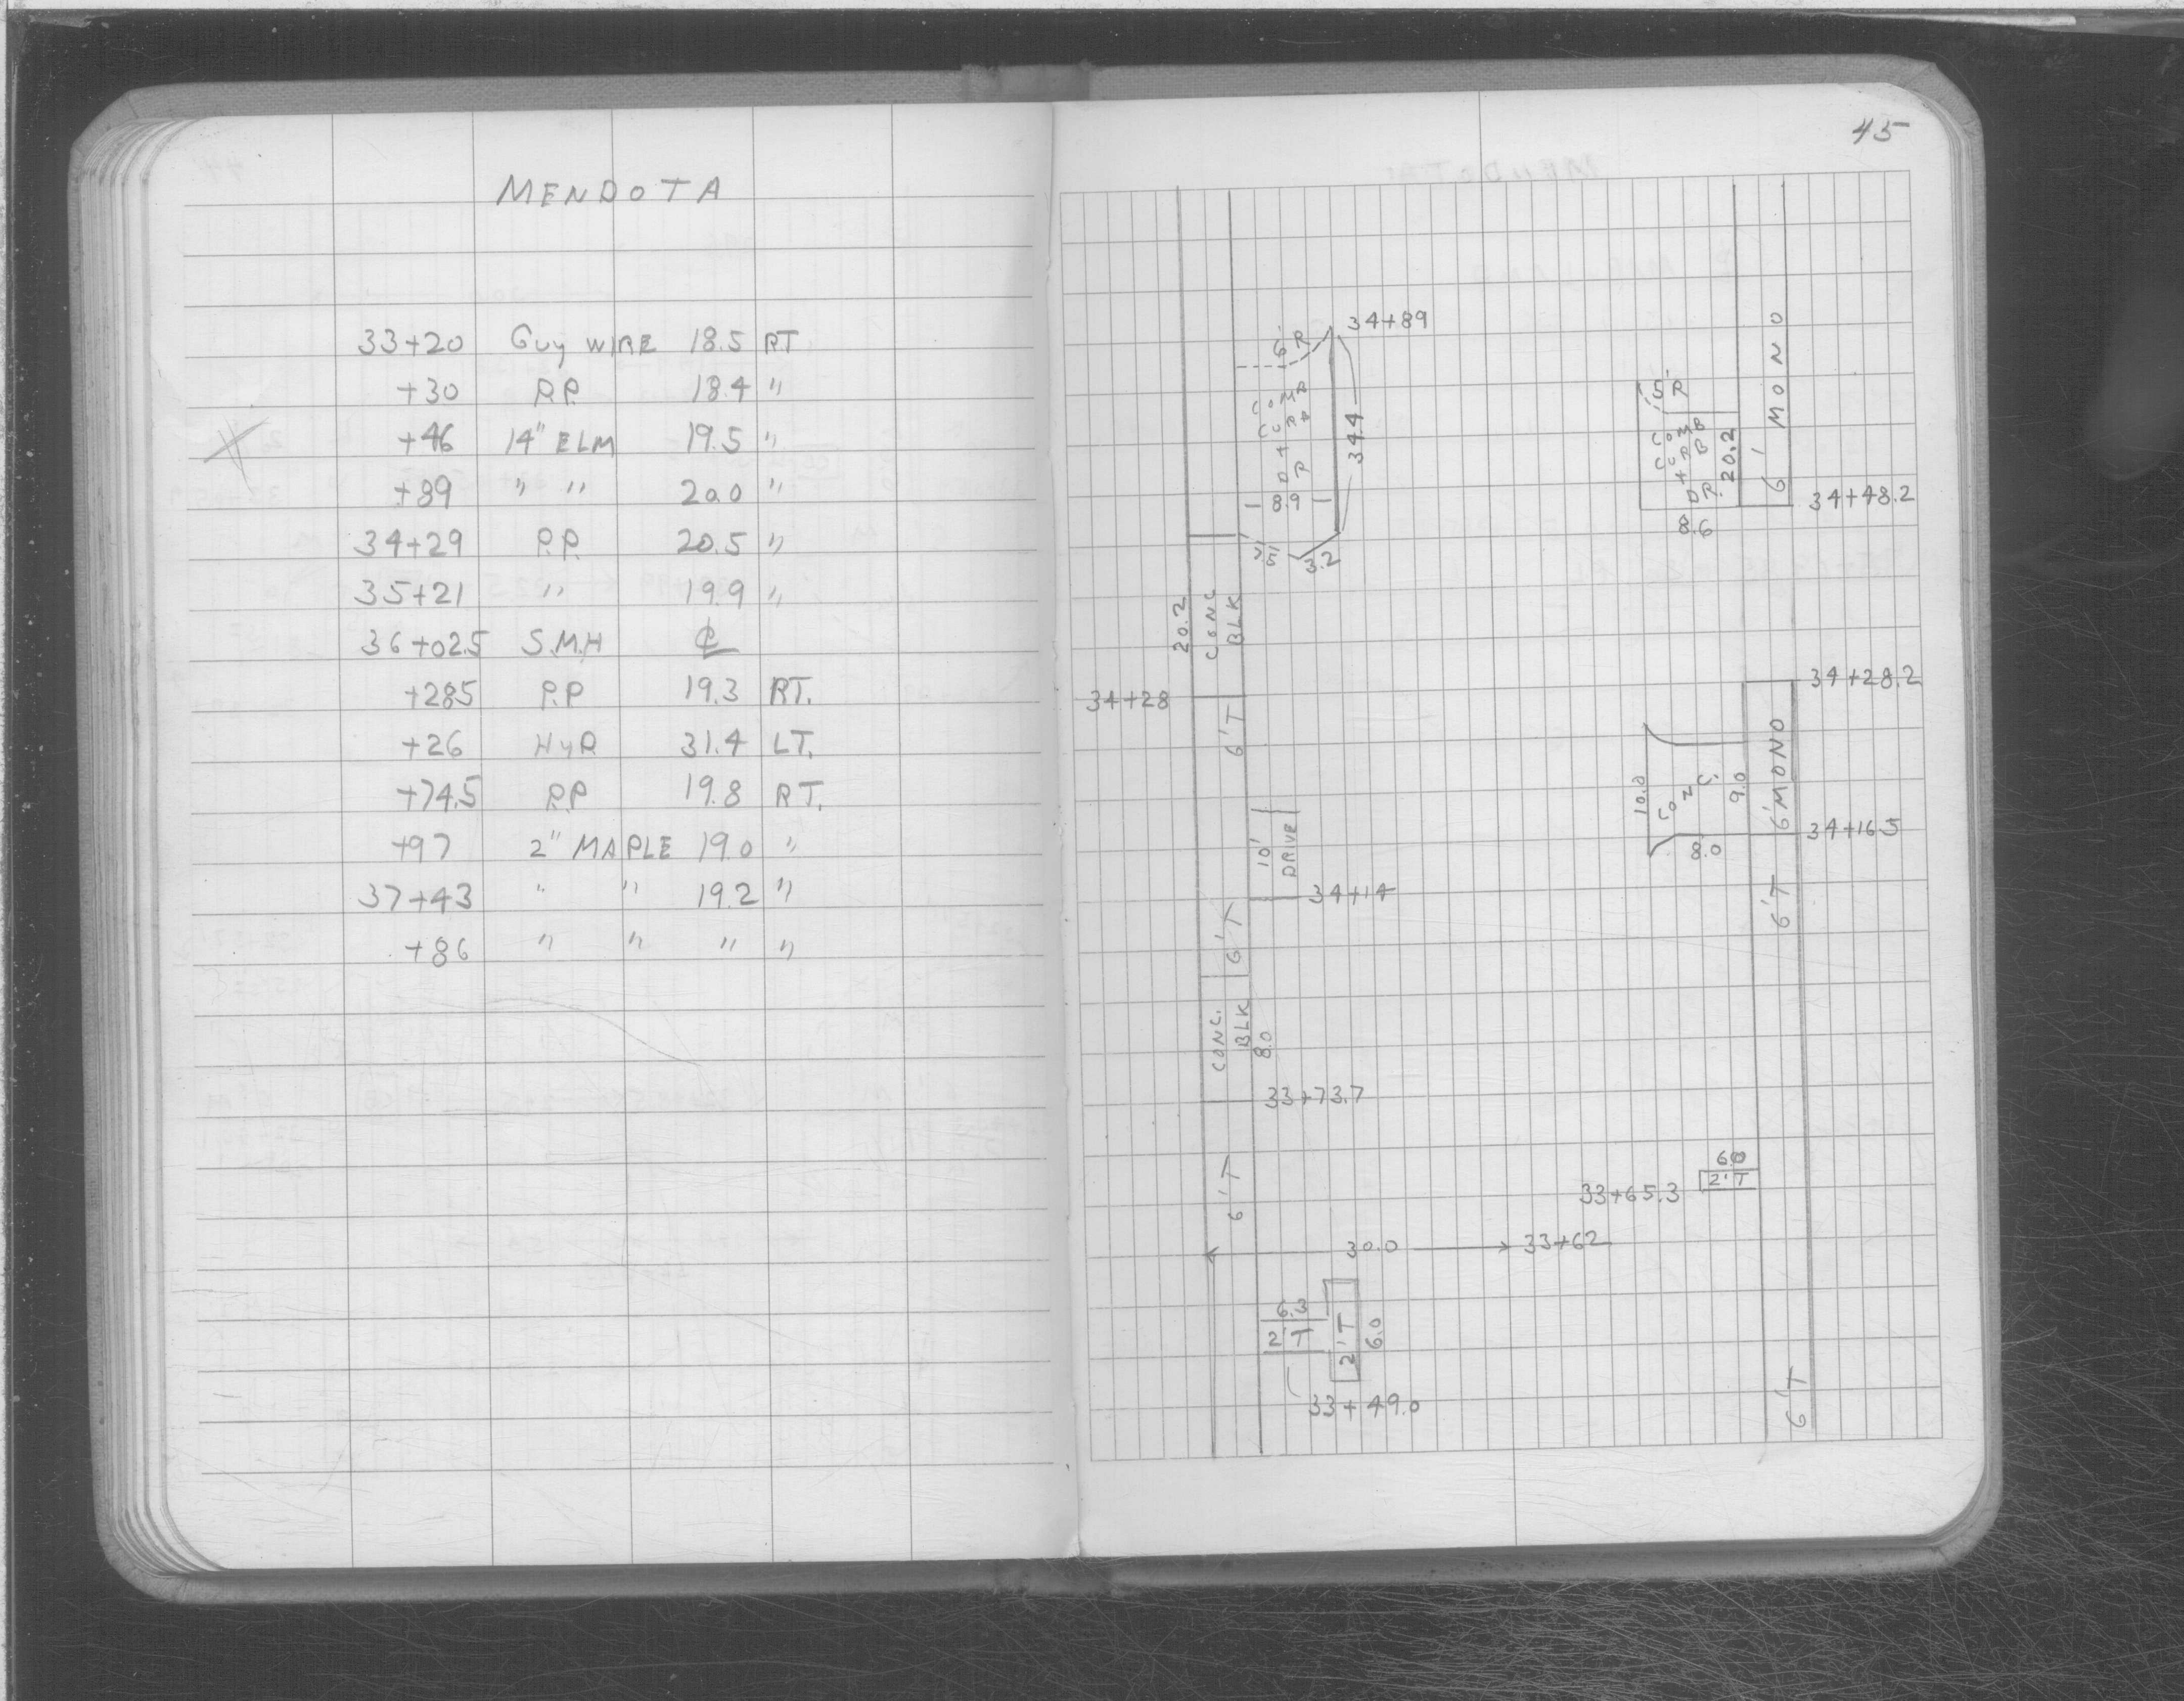 MENDOTA
33+20 GUY WIRE 18.5 RT
+30 P.P. 18.4 "
+46 14" ELM 19.5 "
+89 " " 20.0 "
34+29 P.P. 20.5 "
35+21 " 19.9 "
36+02.5 S.M.H ℄
+28.5 P.P 19.3 RT.
+26 HYD 31.4 LT.
+74.5 P.P 19.8 RT.
+97 2" MAPLE 19.0 "
37+43 " " 19.2 "
+86 " " " "
45
34+89
6' R
COMB
CURB
+
DR
34.4
8.9
3.2
20.2
CONC
BLK
34+28
6'T
10'
DRIVE
34+14
6'T
CONC.
BLK
8.0
33+73.7
6'T
30.0
33+62
6.3
2'T
2'T
6.0
33+49.0
6' MONO
5' R
COMB
CURB
+
DR.
20.2
8.6
34+48.2
34+28.2
6' MONO
10.0
CONC.
9.0
8.0
34+16.5
6'T
6.0
2'T
33+65.3
6'T